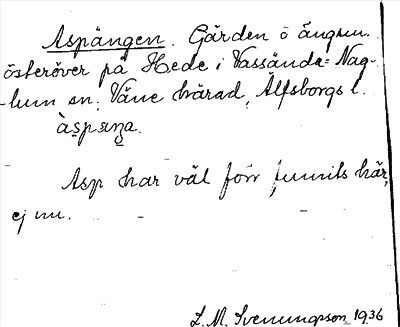 Aspängen. Gärden ö ängen.
österöver på Hede i Vassända-Nag-
lum sn. Väne härad, Älfsborgs l.
Asp har väl förr funnits här,
ej nu.
L. M. Svenungsson 1936